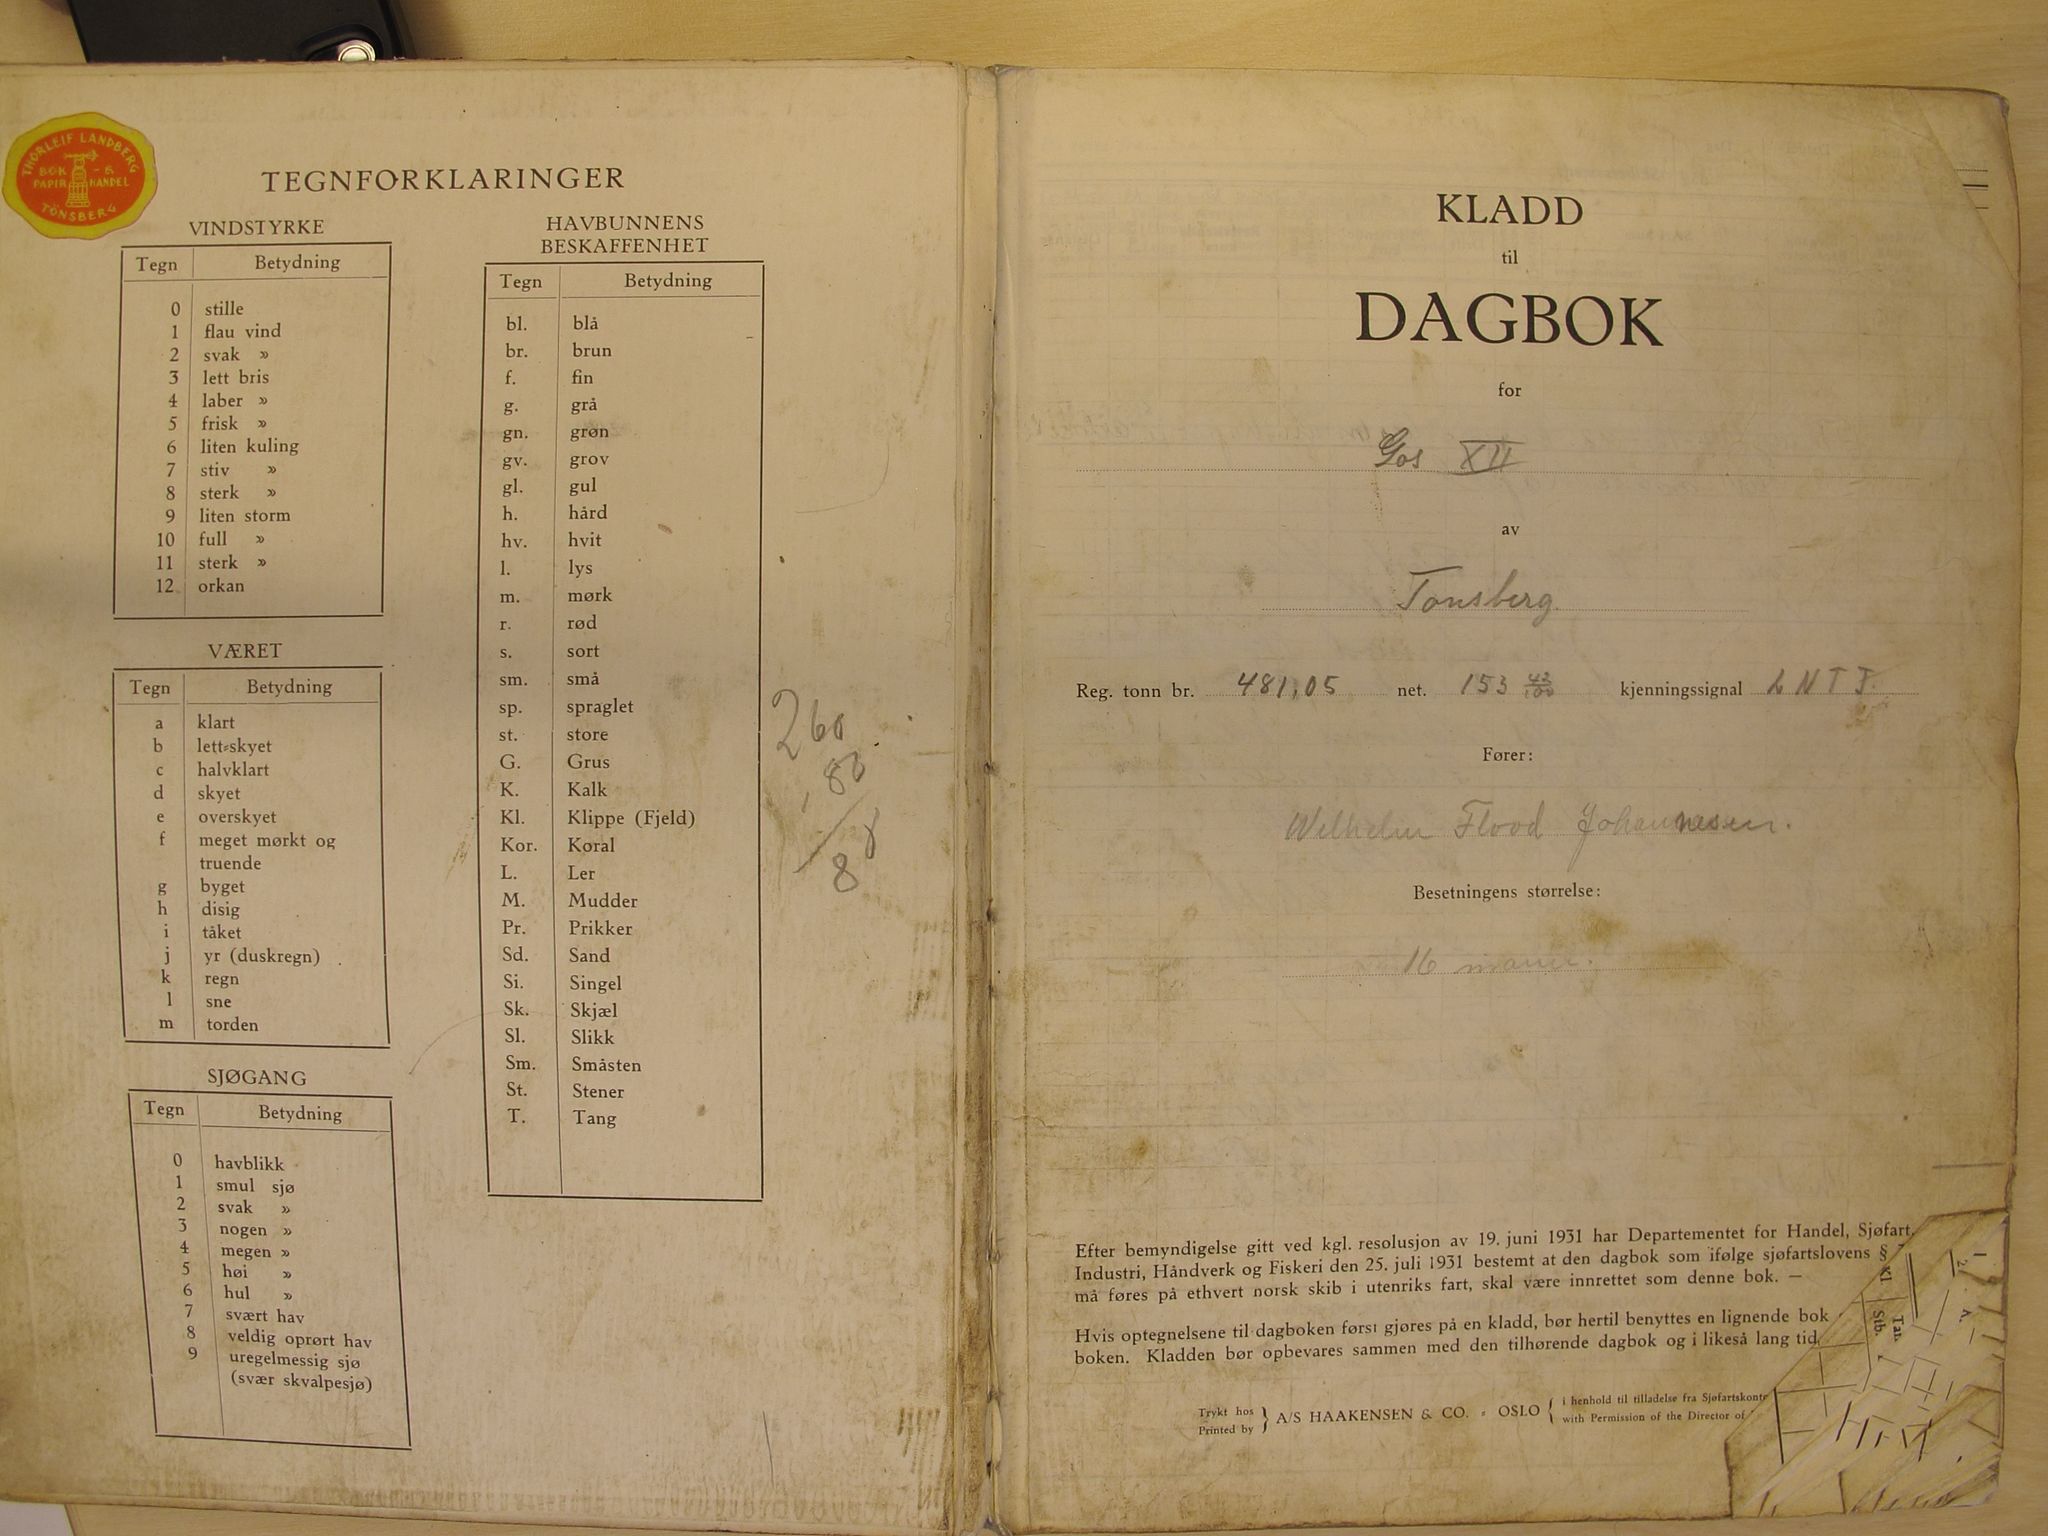 THORLEIF LANDBERG
BOK - &
PAPIR HANDEL
TÖNSBERG
TEGNFORKLARINGER
VINDSTYRKE
Tegn Betydning
0 stille
1 flau vind
2 svak »
3 lett bris
4 laber »
5 frisk »
6 liten kuling
7 stiv »
8 sterk »
9 liten storm
10 full »
11 sterk »
12 orkan
VÆRET
Tegn Betydning
a klart
b lett-skyet
c halvklart
d skyet
e overskyet
f meget mørkt og
truende
g byget
h disig
i tåket
j yr (duskregn)
k regn
l sne
m torden
SJØGANG
Tegn Betydning
0 havblikk
1 smul sjø
2 svak »
3 nogen »
4 megen »
5 høi »
6 hul »
7 svært hav
8 veldig oprørt hav
9 uregelmessig sjø
(svær skvalpesjø)
HAVBUNNENS
BESKAFFENHET
Tegn Betydning
bl. blå
br. brun
f. fin
g. grå
gn. grøn
gv. grov
gl. gul
h. hård
hv. hvit
l. lys
m. mørk
r. rød
s. sort
sm. små
sp. spraglet
st. store
G. Grus
K. Kalk
Kl. Klippe (Fjeld)
Kor. Koral
L. Ler
M. Mudder
Pr. Prikker
Sd. Sand
Si. Singel
Sk. Skjæl
Sl. Slikk
Sm. Småsten
St. Stener
T. Tang
260
KLADD
til
DAGBOK
for
Gos XII
av
Tønsberg.
Reg. tonn br. 481,05 net. 153 42/100 kjenningssignal L N T J.
Fører:
Wilhelm Flood Johannesen.
Besetningens størrelse:
16 mann.
Efter bemyndigelse gitt ved kgl. resolusjon av 19. juni 1931 har Departementet for Handel, Sjøfart,
Industri, Håndverk og Fiskeri den 25. juli 1931 bestemt at den dagbok som ifølge sjøfartslovens §
må føres på ethvert norsk skib i utenriks fart, skal være innrettet som denne bok. —
Hvis optegnelsene til dagboken først gjøres på en kladd, bør hertil benyttes en lignende bok
boken. Kladden bør opbevares sammen med den tilhørende dagbok og i likeså lang tid
Trykt hos
Printed by } A/S HAAKENSEN & CO. - OSLO { i henhold til tilladelse fra Sjøfartskonto
with Permission of the Director of
Kl.
Tan.
Stb.